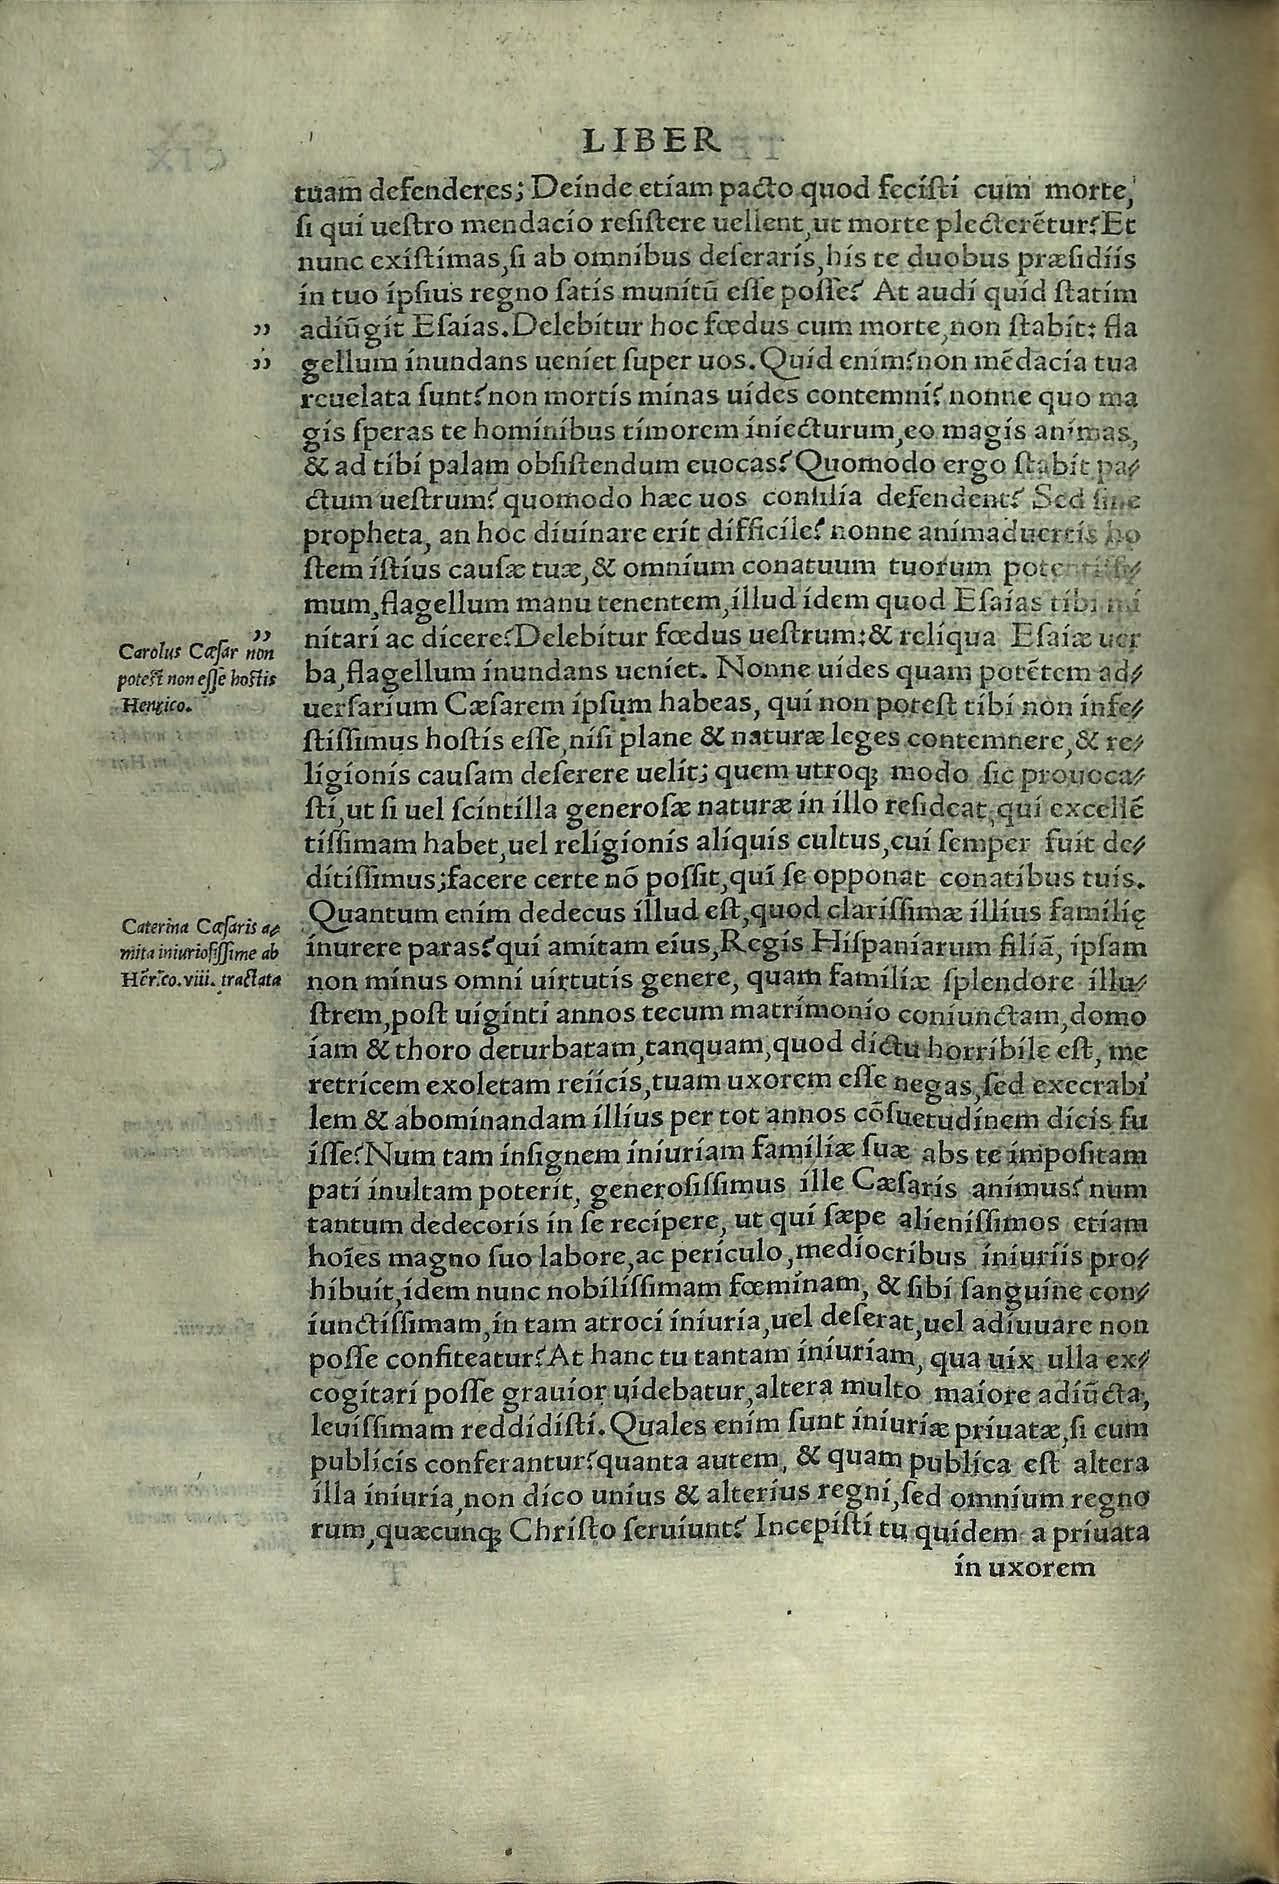 LIBER
tuam defenderes; Deinde etiam pacto quod fecisti cum morte,
si qui uestro mendacio resistere uellent, ut morte plecterētur? Et
nunc existimas, si ab omnibus deseraris, his te duobus præsidiis
in tuo ipsius regno satis munitū esse posse? At audi quid statim
,, adiūgit Esaias. Delebitur hoc fœdus cum morte, non stabit: fla
,, gellum inundans ueniet super uos. Quid enim? non mēdacia tua
reuelata sunt? non mortis minas uides contemni? nonne quo ma
gis speras te hominibus timorem iniecturum, eo magis animas,
& ad tibi palam obsistendum euocas? Quomodo ergo stabit pa-
ctum uestrum? quomodo hæc uos consilia defendent? Sed sine
propheta, an hoc diuinare erit difficile? nonne animaduertis ho
stem istius causæ tuæ, & omnium conatuum tuorum potentissi-
mum, flagellum manu tenentem, illud idem quod Esaias tibi mi
,, nitari ac dicere? Delebitur fœdus uestrum: & reliqua Esaiæ uer
Carolus Cæsar non
potest non esse hostis
Henrico.
ba, flagellum inundans ueniet. Nonne uides quam potētem ad-
uersarium Cæsarem ipsum habeas, qui non potest tibi non infe-
stissimus hostis esse, nisi plane & naturæ leges contemnere, & re-
ligionis causam deserere uelit; quem utroq; modo sic prouoca-
sti, ut si uel scintilla generosæ naturæ in illo resideat, qui excellē
tissimam habet, uel religionis aliquis cultus, cui semper fuit de-
ditissimus; facere certe nō possit, qui se opponat conatibus tuis.
Quantum enim dedecus illud est, quod clarissimæ illius familię
Caterina Cæsaris a-
mita iniuriosissime ab
Hēr̄ico. viii. tractata
inurere paras? qui amitam eius, Regis Hispaniarum filiā, ipsam
non minus omni uirtutis genere, quam familiæ splendore illu-
strem, post uiginti annos tecum matrimonio coniunctam, domo
iam & thoro deturbatam, tanquam, quod dictu horribile est, me
retricem exoletam reiicis, tuam uxorem esse negas, sed execrabi
lem & abominandam illius per tot annos cōsuetudinem dicis fu
isse? Num tam insignem iniuriam familiæ suæ abs te impositam
pati inultam poterit, generosissimus ille Cæsaris animus? num
tantum dedecoris in se recipere, ut qui sæpe alienissimos etiam
hoīes magno suo labore, ac periculo, mediocribus iniuriis pro-
hibuit, idem nunc nobilissimam fœminam, & sibi sanguine con-
iunctissimam, in tam atroci iniuria, uel deserat, uel adiuuare non
posse confiteatur? At hanc tu tantam iniuriam, qua uix ulla ex-
cogitari posse grauior uidebatur, altera multo maiore adiūcta,
leuissimam reddidisti. Quales enim sunt iniuriæ priuatæ, si cum
publicis conferantur? quanta autem, & quam publica est altera
illa iniuria, non dico unius & alterius regni, sed omnium regno
rum, quæcunq; Christo seruiunt? Incepisti tu quidem a priuata
in uxorem